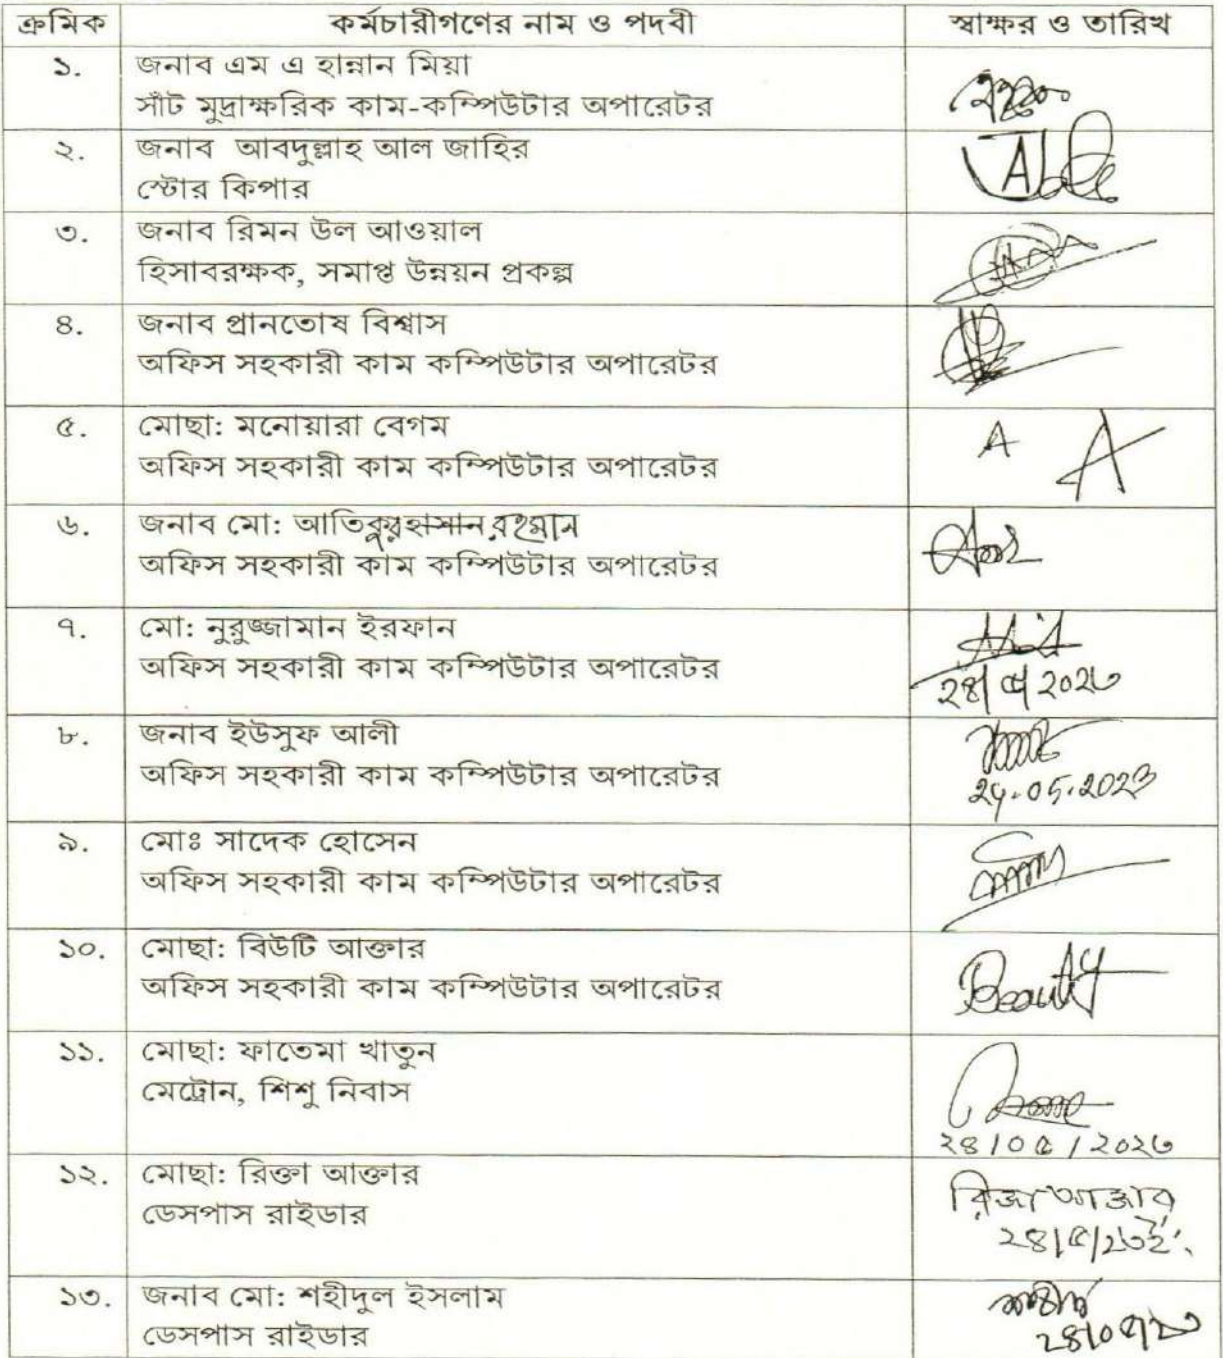 ক্রমিক কর্মচারীগণের নাম ও পদবী স্বাক্ষর ও তারিখ
১. জনাব এম এ হান্নান মিয়া
সাঁট মুদ্রাক্ষরিক কাম-কম্পিউটার অপারেটর
২. জনাব আবদুল্লাহ আল জাহির
স্টোর কিপার
৩. জনাব রিমন উল আওয়াল
হিসাবরক্ষক, সমাপ্ত উন্নয়ন প্রকল্প
৪. জনাব প্রানতোষ বিশ্বাস
অফিস সহকারী কাম কম্পিউটার অপারেটর
৫. মোছা: মনোয়ারা বেগম
অফিস সহকারী কাম কম্পিউটার অপারেটর
৬. জনাব মো: আতিকুর রহমান
অফিস সহকারী কাম কম্পিউটার অপারেটর
৭. মো: নুরুজ্জামান ইরফান
অফিস সহকারী কাম কম্পিউটার অপারেটর
২৪/৫/২০২৩
৮. জনাব ইউসুফ আলী
অফিস সহকারী কাম কম্পিউটার অপারেটর
24.05.2023
৯. মোঃ সাদেক হোসেন
অফিস সহকারী কাম কম্পিউটার অপারেটর
১০. মোছা: বিউটি আক্তার
অফিস সহকারী কাম কম্পিউটার অপারেটর
Beauty
১১. মোছা: ফাতেমা খাতুন
মেট্রোন, শিশু নিবাস
২৪/০৫/২০২৩
১২. মোছা: রিক্তা আক্তার
ডেসপাস রাইডার
রিক্তা আক্তার
১৩. জনাব মো: শহীদুল ইসলাম
ডেসপাস রাইডার
২৪/০৫/২৩